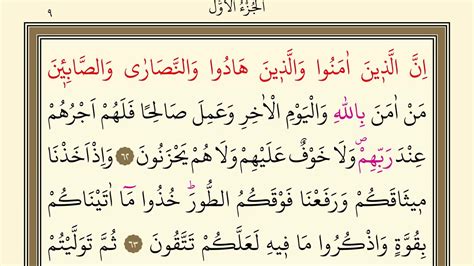 اَلْجُزْءُ الْاَوَّلُ ٩
اِنَّ الَّذ۪ينَ اٰمَنُوا وَالَّذ۪ينَ هَادُوا وَالنَّصَارٰى وَالصَّابِـ۪ٔينَ
مَنْ اٰمَنَ بِاللّٰهِ وَالْيَوْمِ الْاٰخِرِ وَعَمِلَ صَالِحًا فَلَهُمْ اَجْرُهُمْ
عِنْدَ رَبِّهِمْۖ وَلَا خَوْفٌ عَلَيْهِمْ وَلَا هُمْ يَحْزَنُونَ ٦٢ وَاِذْ اَخَذْنَا
م۪يثَاقَكُمْ وَرَفَعْنَا فَوْقَكُمُ الطُّورَۜ خُذُوا مَٓا اٰتَيْنَاكُمْ
بِقُوَّةٍ وَاذْكُرُوا مَا ف۪يهِ لَعَلَّكُمْ تَتَّقُونَ ٦٣ ثُمَّ تَوَلَّيْتُمْ